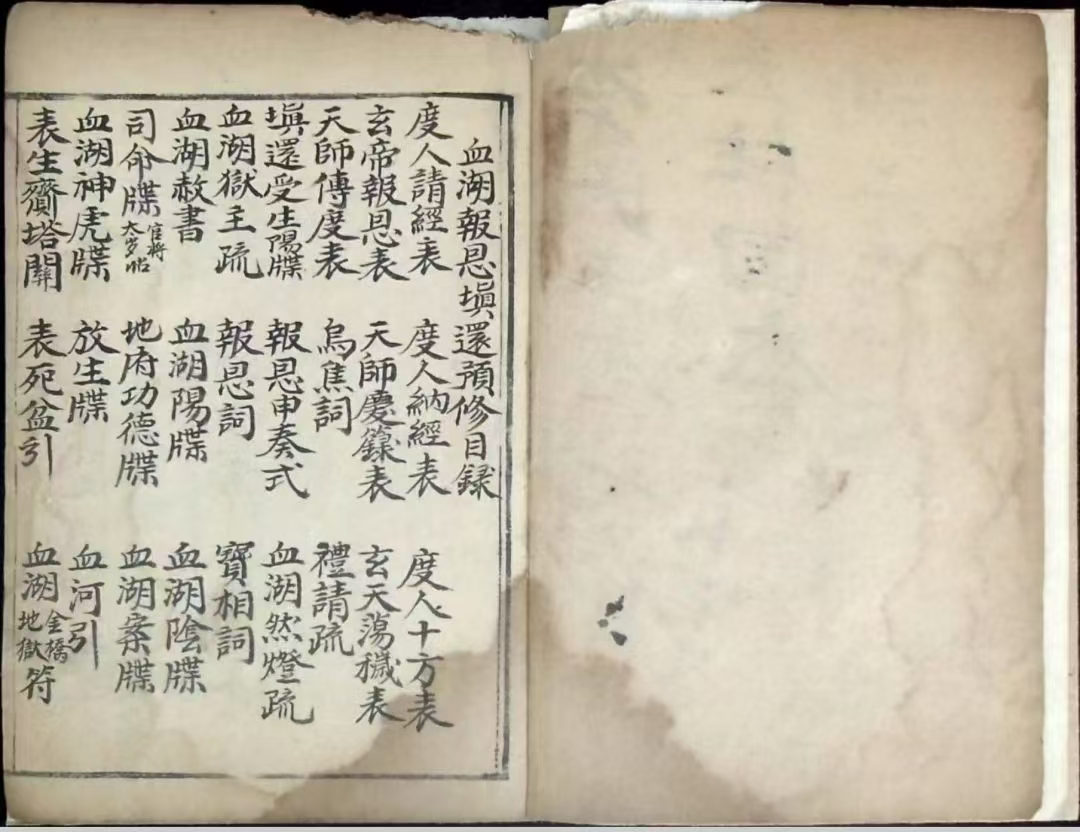 血湖報恩填還預修目録
度人請經表 度人納經表 度人十方表
玄帝報恩表 天師慶籙表 玄天蕩穢表
天師傳度表 烏焦詞 禮請疏
填還受生陽牒 報恩申奏式 血湖然燈疏
血湖獄主疏 報恩詞 寶相詞
血湖赦書 血湖陽牒 血湖陰牒
司命牒 官將太岁帖 地府功德牒 血湖案牒
血湖神虎牒 放生牒 血河引
表生齎塔關 表死盆引 血湖金橋地獄符